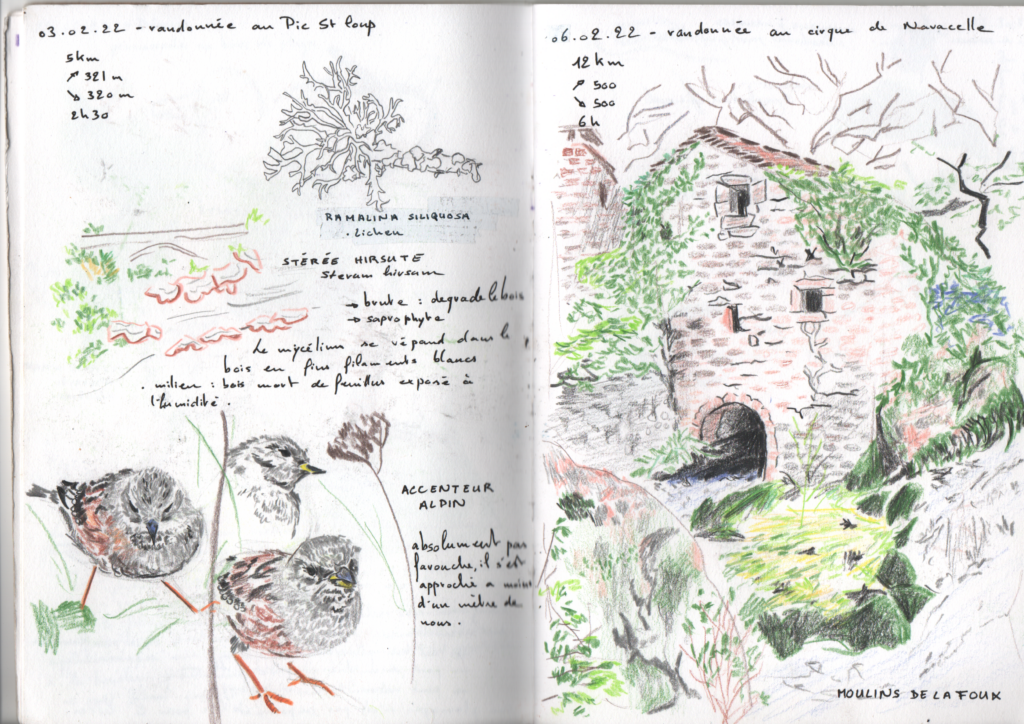 03.02.22 - randonnée au Pic St Loup
5km
↗ 321 m
↘ 320 m
2h30
RAMALINA SILIQUOSA
. lichen
STÉRÉE HIRSUTE
Steram hirsam
→ brute : degrade le bois
→ saprophyte
Le mycélium se répand dans le
bois en fins filaments blancs
. milieu : bois mort de feuillus exposé à
l'humidité.
ACCENTEUR
ALPIN
absolument pas
farouche, il s'est
approché a moins
d'un mètre de
nous.
06.02.22 - randonnée au cirque de Navacelle
12 km
↗ 500
↘ 500
6h
MOULINS DE LA FOUX